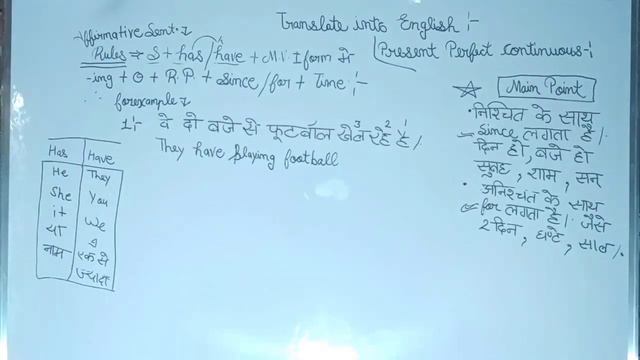 Translate into English :-
Affirmative Sent.
Rules ⇒ S + has/have + M.V. I form में
-ing + O + R.P + Since/for + Time :-
Present Perfect continuous -:
for example
1:- वे दो बजे से फूटबॉल खेल रहे हैं /
3 2 1
They have playing football
Has Have
He They
She You
it We
या
नाम एक से
ज्यादा
Main Point
• निश्चित के साथ
Since लगता है /
दिन हो, बजे हो
सुबह, शाम, सन्
• अनिश्चित के साथ
for लगता है / जैसे
2 दिन, घण्टे, साल /